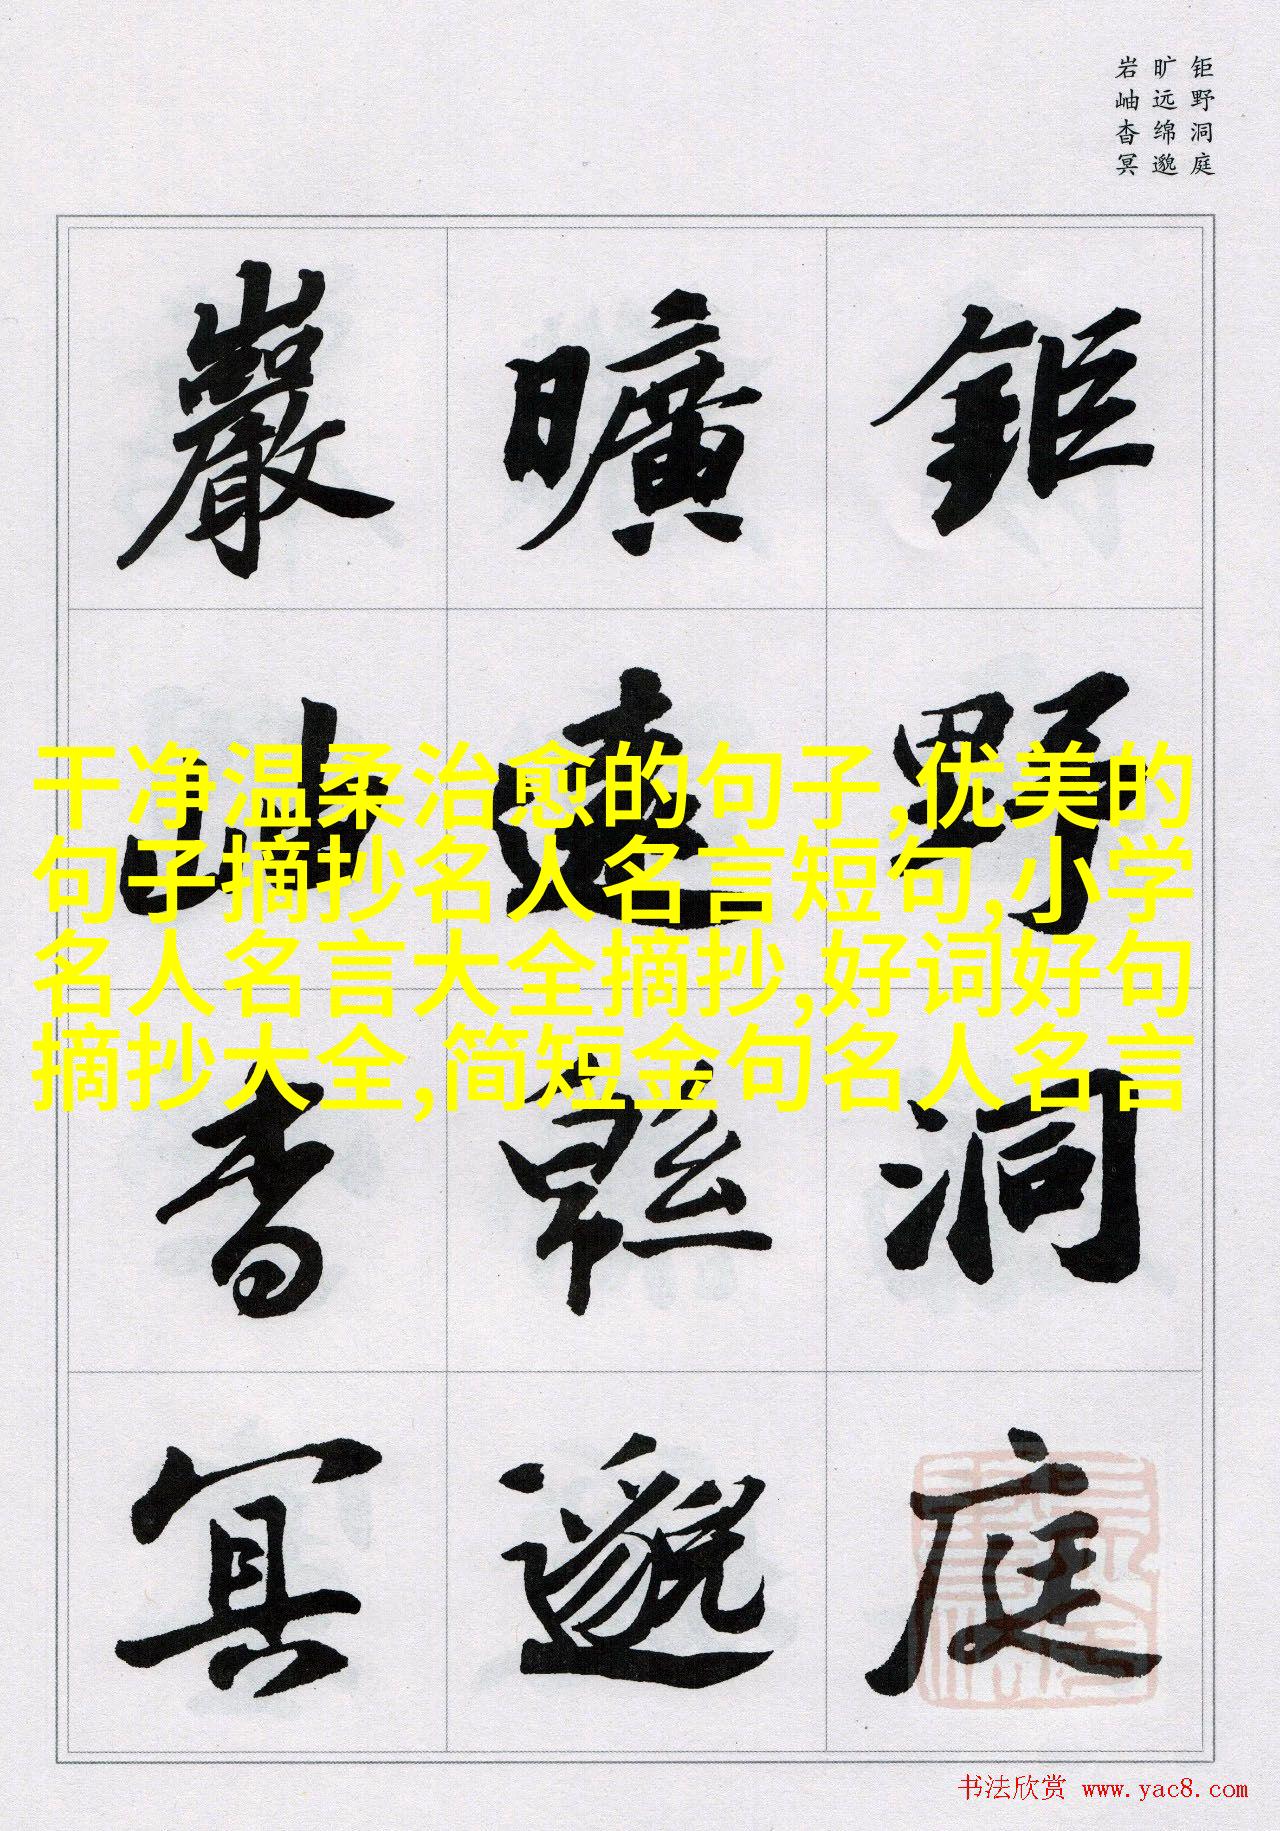 钜野洞庭
旷远绵邈
岩岫杳冥
鉅野洞庭
曠遠緜邈
巖岫杳冥
干净温柔治愈的句子,优美的
句子摘抄名人名言短句,小学
名人名言大全摘抄,好词好句
摘抄大全,简短金句名人名言
书法欣赏 www.yac8.com